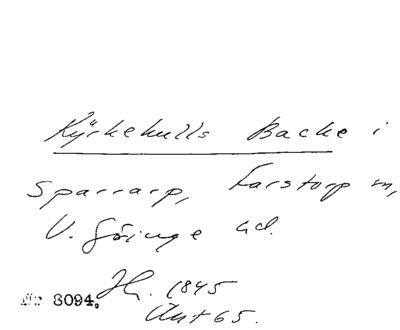 Kyrkehulls Backe i
Sparrarp, Farstorp sn,
V. Göinge hd.
H. 1845
Nr 8094.
Ant 65.